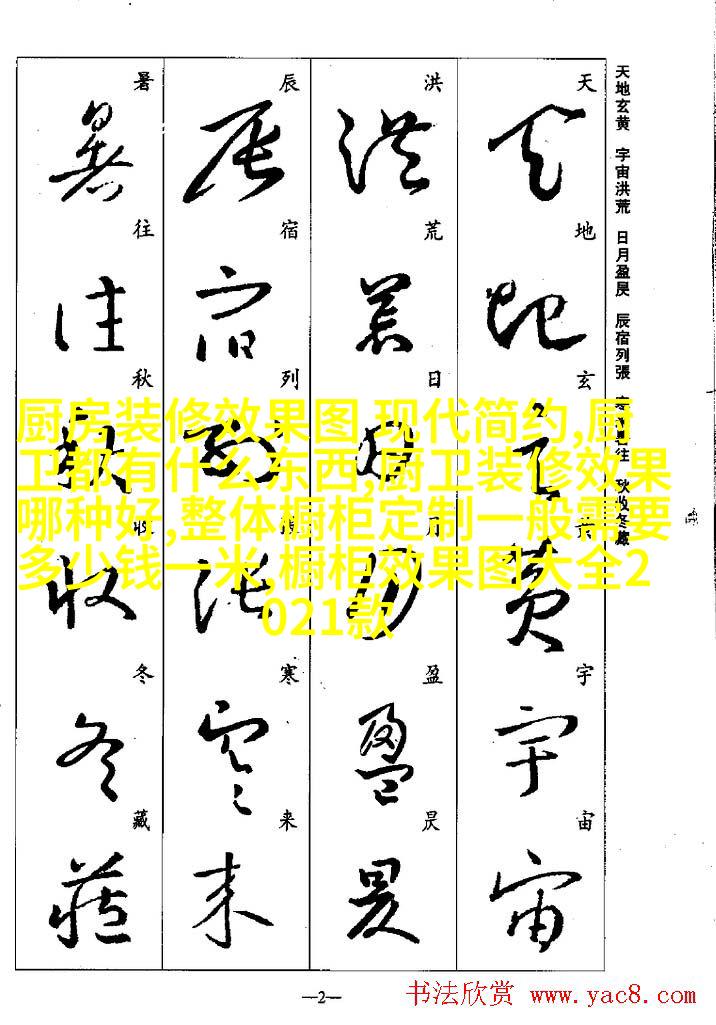 天地玄黄 宇宙洪荒 日月盈昃 辰宿列張 寒暑往 秋收冬藏
天 天 地 地 玄 玄 黄 黄 宇 宇 宙 宙
洪 洪 荒 荒 日 日 月 月 盈 盈 昃 昃
辰 辰 宿 宿 列 列 張 張 寒 寒 来 来
暑 暑 往 往 秋 秋 收 收 冬 冬 藏 藏
厨房装修效果图,现代简约,厨
卫都有什么东西,厨卫装修效果
哪种好,整体橱柜定制一般需要
多少钱一米,橱柜效果图大全2
021款
—2—
书法欣赏 www.yac8.com